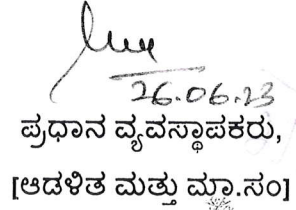 26.06.23
ಪ್ರಧಾನ ವ್ಯವಸ್ಥಾಪಕರು,
[ಆಡಳಿತ ಮತ್ತು ಮಾ.ಸಂ]